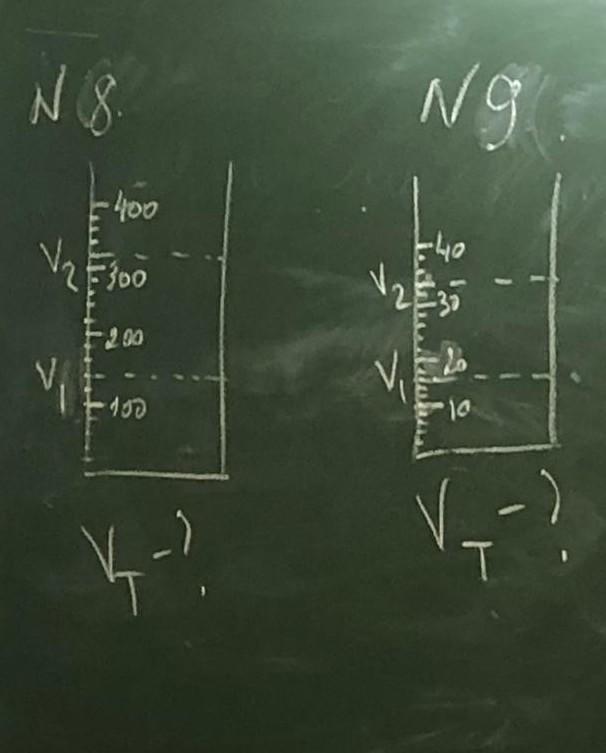 N 8.
400
V₂
300
200
V₁
100
V_T - ?
N 9.
40
V₂
30
20
V₁
10
V_T - ?